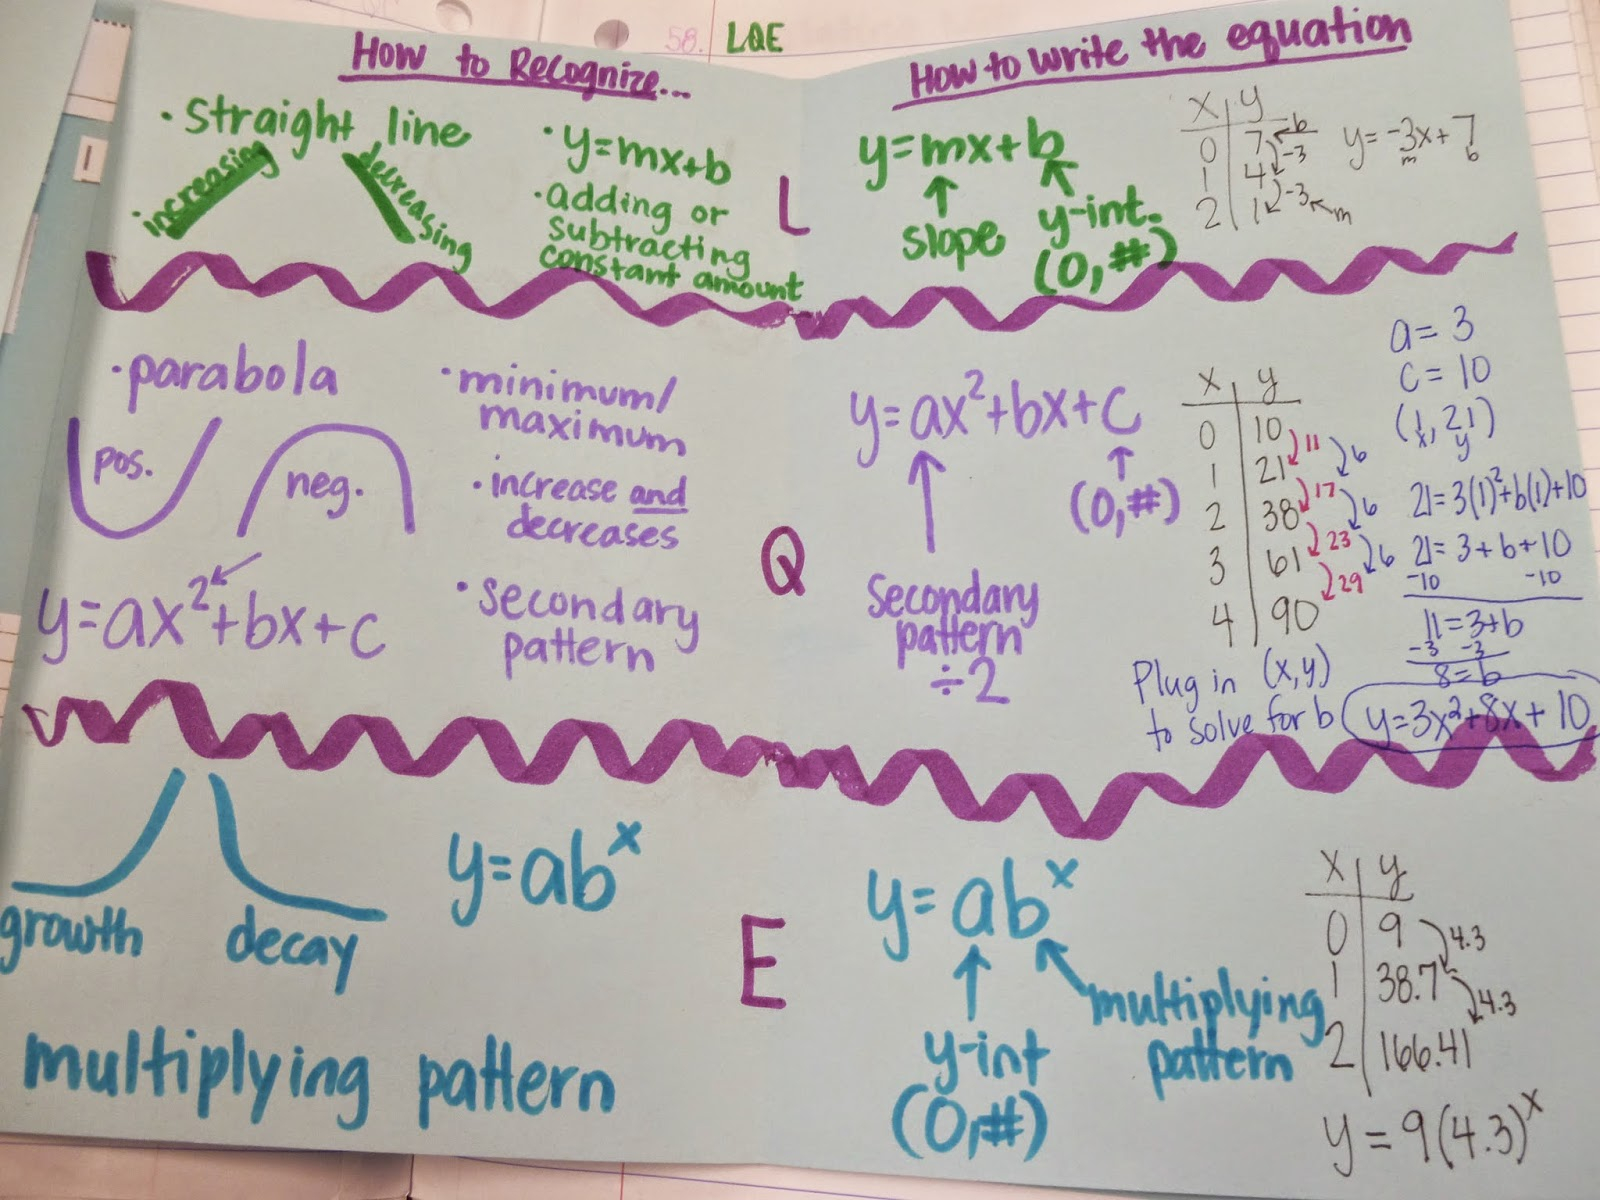 58. LQE
How to Recognize...
• straight line
increasing
decreasing
• y=mx+b
• adding or
subtracting
constant amount
L
How to write the equation
y=mx+b
slope
y-int.
(0,#)
x y
0 7 b
-3
1 4
-3 m
2 1
y=-3x+7
m b
• parabola
pos.
neg.
y=ax²+bx+c
• minimum/
maximum
• increase and
decreases
• secondary
pattern
Q
y=ax²+bx+c
(0,#)
Secondary
pattern
÷2
x y
0 10
11
1 21 6
17
2 38 6
23
3 61 6
29
4 90
a=3
c=10
(1, 21)
x y
21=3(1)²+b(1)+10
21=3+b+10
-10 -10
11=3+b
-3 -3
8=b
Plug in (x,y)
to solve for b
y=3x²+8x+10
growth
decay
y=abˣ
multiplying pattern
E
y=abˣ
y-int
(0,#)
multiplying
pattern
x y
0 9
4.3
1 38.7
4.3
2 166.41
y=9(4.3)ˣ